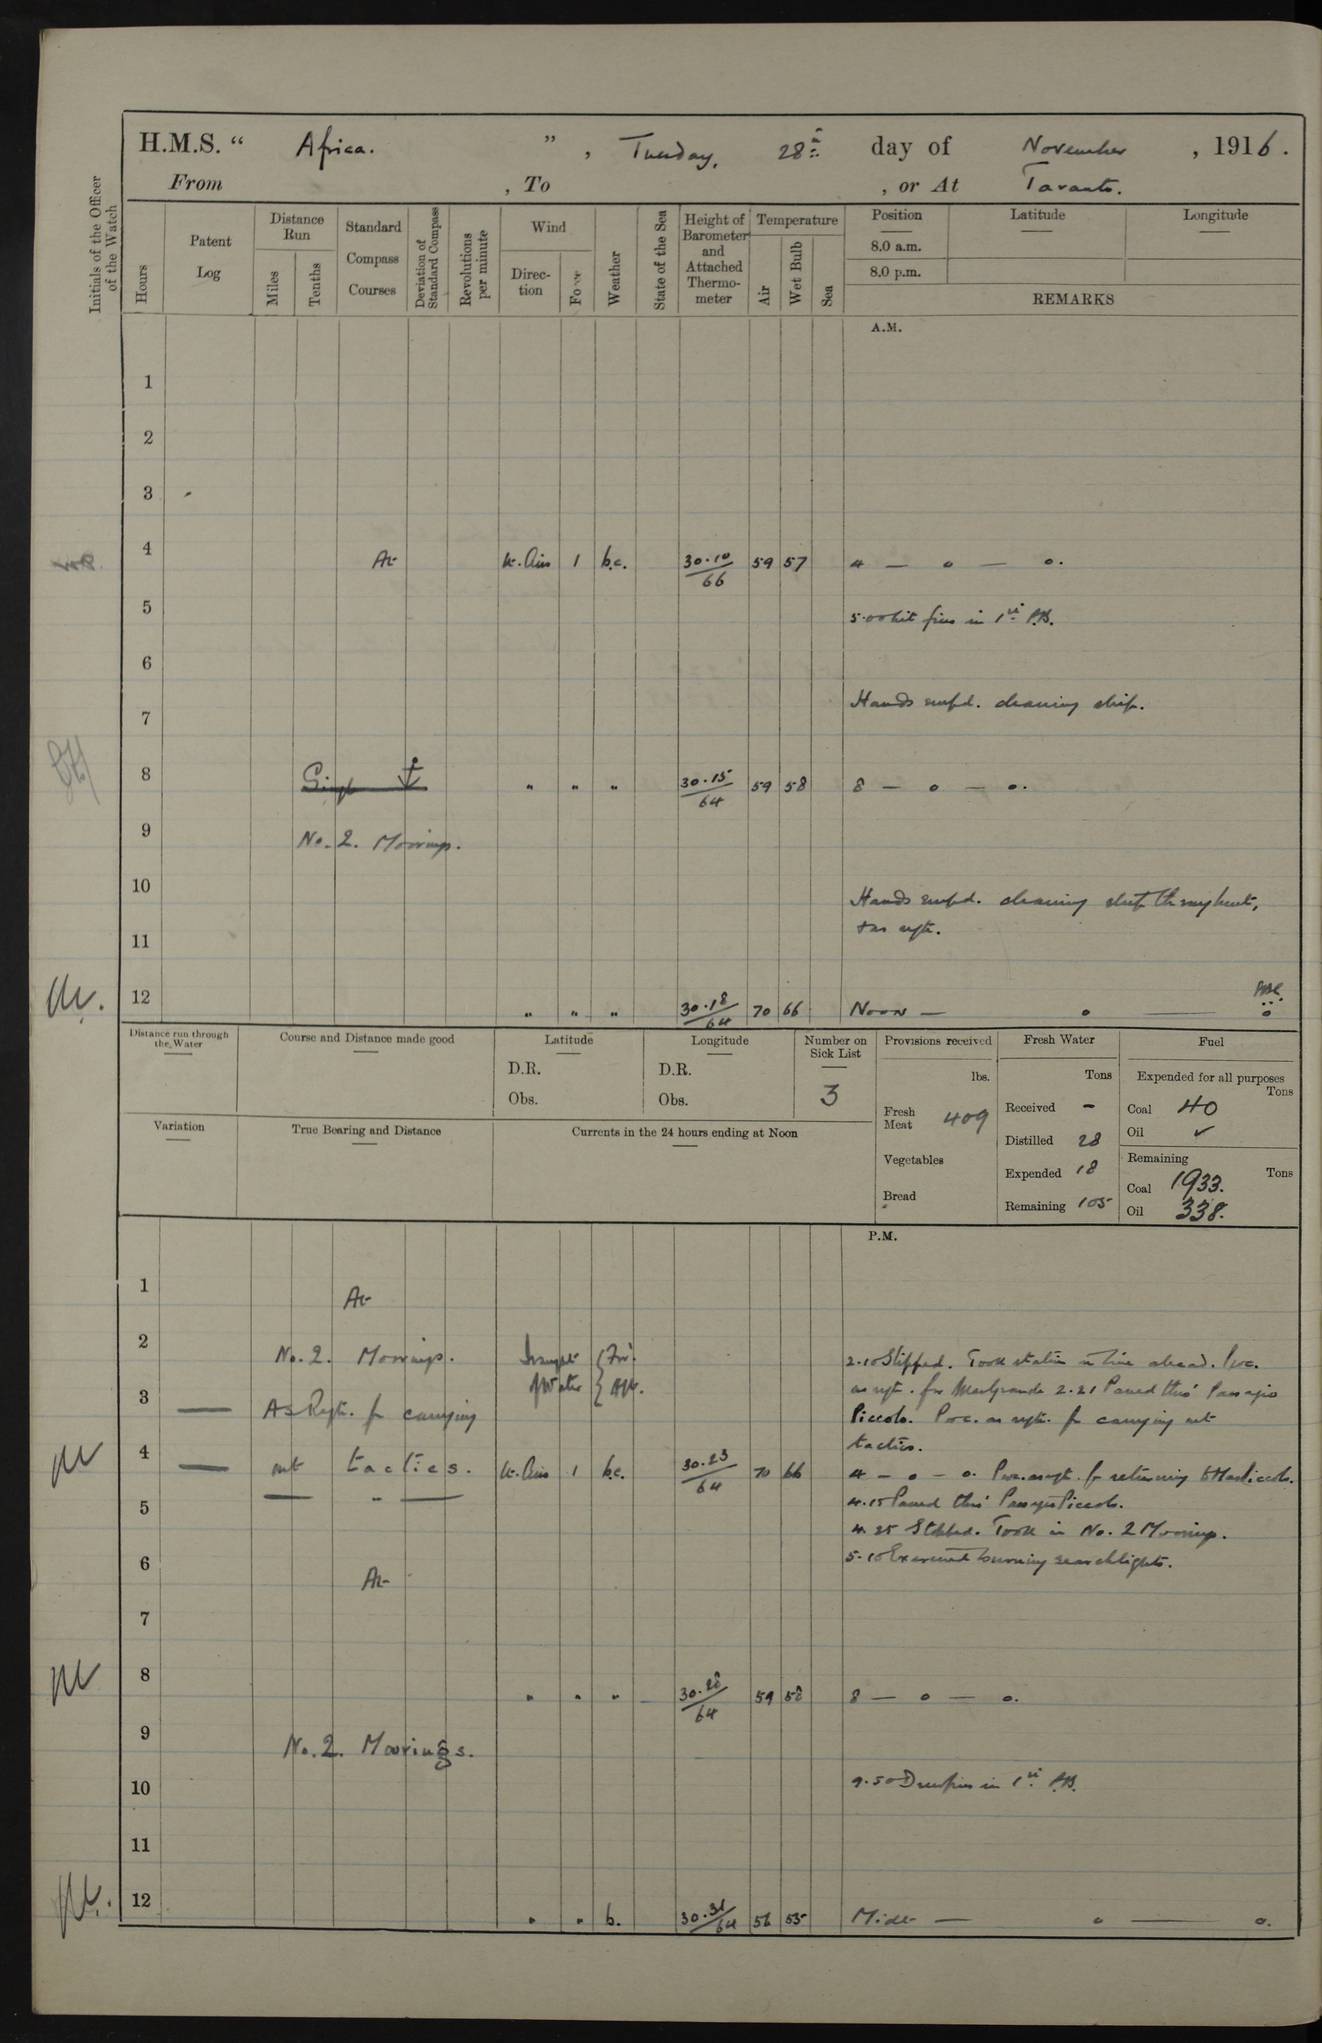 H.M.S. “ Africa. ” , Tuesday, 28th day of November , 1916.
From , To , or At Taranto.
Initials of the Officer of the Watch
Hours
Patent Log
Distance Run
Miles
Tenths
Standard Compass Courses
Deviation of Standard Compass
Revolutions per minute
Wind
Direc-tion
Force
Weather
State of the Sea
Height of Barometer and Attached Thermo-meter
Temperature
Air
Wet Bulb
Sea
Position
Latitude
Longitude
8.0 a.m.
8.0 p.m.
REMARKS
A.M.
1
2
3
4 At Lt. Airs 1 b.c. 30.10/66 59 57 4 — o — o.
5 5.00 Lit fires in 1st P.B.
6
7 Hands empd. cleaning ship.
8 Single ⚓ " " " 30.15/64 59 58 8 — o — o.
9 No. 2. Moorings.
10 Hands empd. cleaning ship throughout,
11 & as reqte.
12 " " " 30.18/64 70 66 Noon — o — o
Distance run through the Water
Course and Distance made good
Latitude
D.R.
Obs.
Longitude
D.R.
Obs.
Number on Sick List
3
Provisions received
lbs.
Fresh Meat 409
Vegetables
Bread
Fresh Water
Tons
Received -
Distilled 28
Expended 18
Remaining 105
Fuel
Expended for all purposes
Tons
Coal 40
Oil ✓
Remaining
Tons
Coal 1933.
Oil 338.
Variation
True Bearing and Distance
Currents in the 24 hours ending at Noon
P.M.
1 At
2 No. 2. Moorings. Draught of Water { For'd. Aft. 2.10 Slipped. Took station in line ahead. Proc.
as reqte. for Mar Grande 2.21 Passed thro' Passagio
3 As Reqte. for carrying Piccolo. Proc. as reqte. for carrying out
tactics.
4 out tactics. Lt. Airs 1 b.c. 30.23/64 70 66 4 — o — o. Proc. as reqte. for returning to Mar Piccolo.
5 4.15 Passed thro' Passagio Piccolo.
4.25 Stopped. Took in No. 2 Moorings.
6 At 5.10 Exercised burning searchlights.
7
8 " " " 30.28/64 59 58 8 — o — o.
9 No. 2. Moorings.
10 9.50 Drew fires in 1st P.B.
11
12 " " b. 30.31/64 56 55 Midt — o — o.